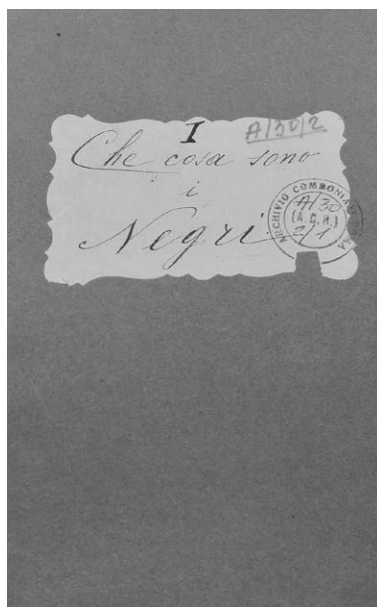 I
A/30/2
Che cosa sono
i
Negri
ARCHIVIO COMBONIANO
A/30
(A.C.R.)
2/1